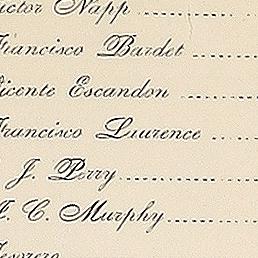 ictor Napp
Francisco Bardet
Vicente Escandon
Francisco Laurence
J. Perry
C. Murphy
Tesorero